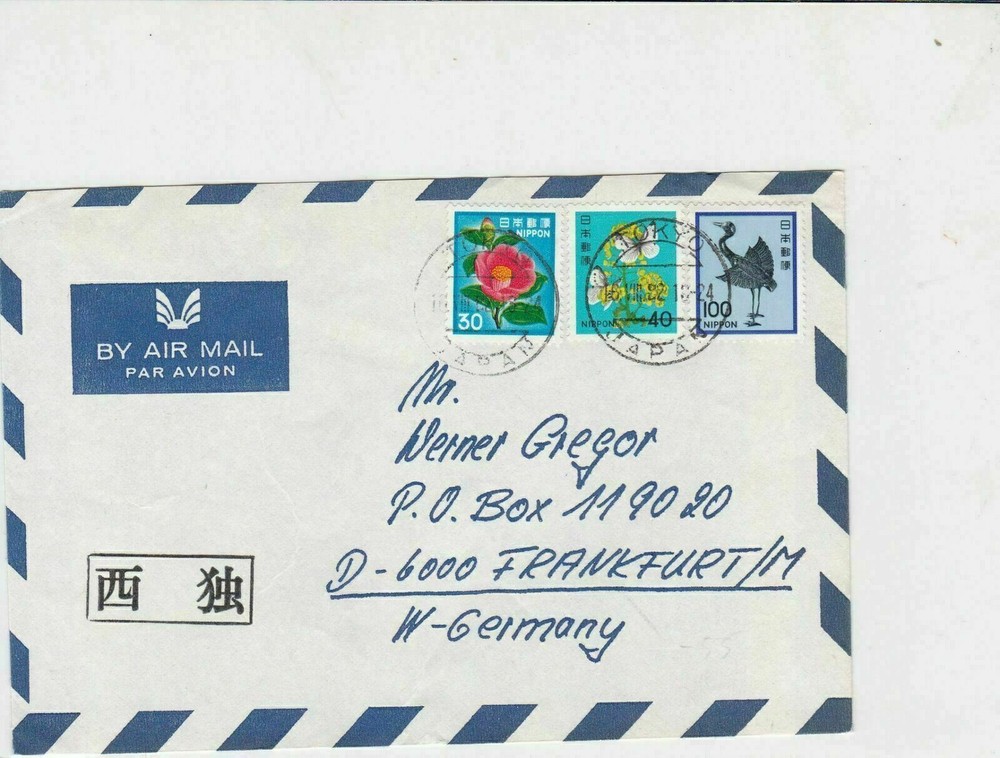 日本郵便
NIPPON
30
日本郵便
NIPPON
40
日本郵便
100
NIPPON
TOKYO
JAPAN
TOKYO
16.VIII.82 18-24
JAPAN
BY AIR MAIL
PAR AVION
Mr.
Werner Gregor
P.O. Box 119020
D-6000 FRANKFURT/M
W-Germany
西 独